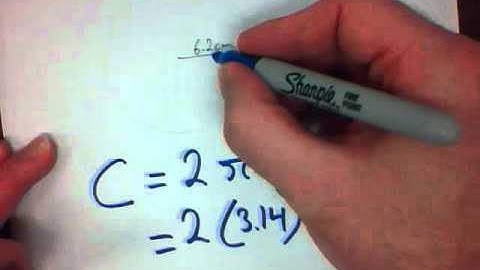 6.2cm
Sharpie
C = 2 π
= 2 (3.14)